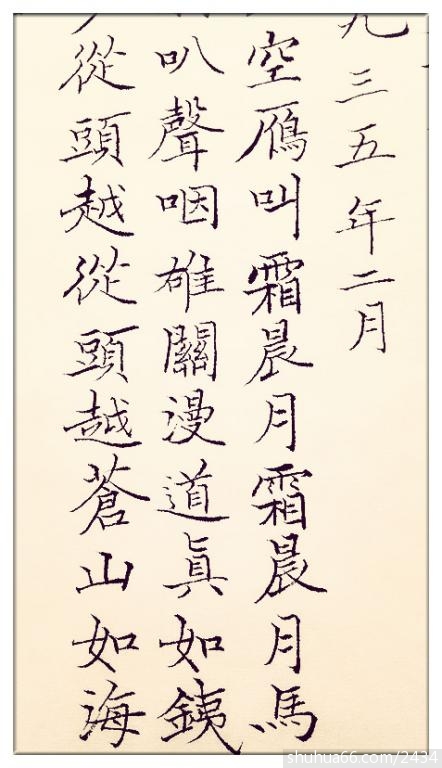 九三五年二月
空鴈叫霜晨月霜晨月馬
叭聲咽雄關漫道眞如銕
從頭越從頭越蒼山如海
shuhua66.com/2434